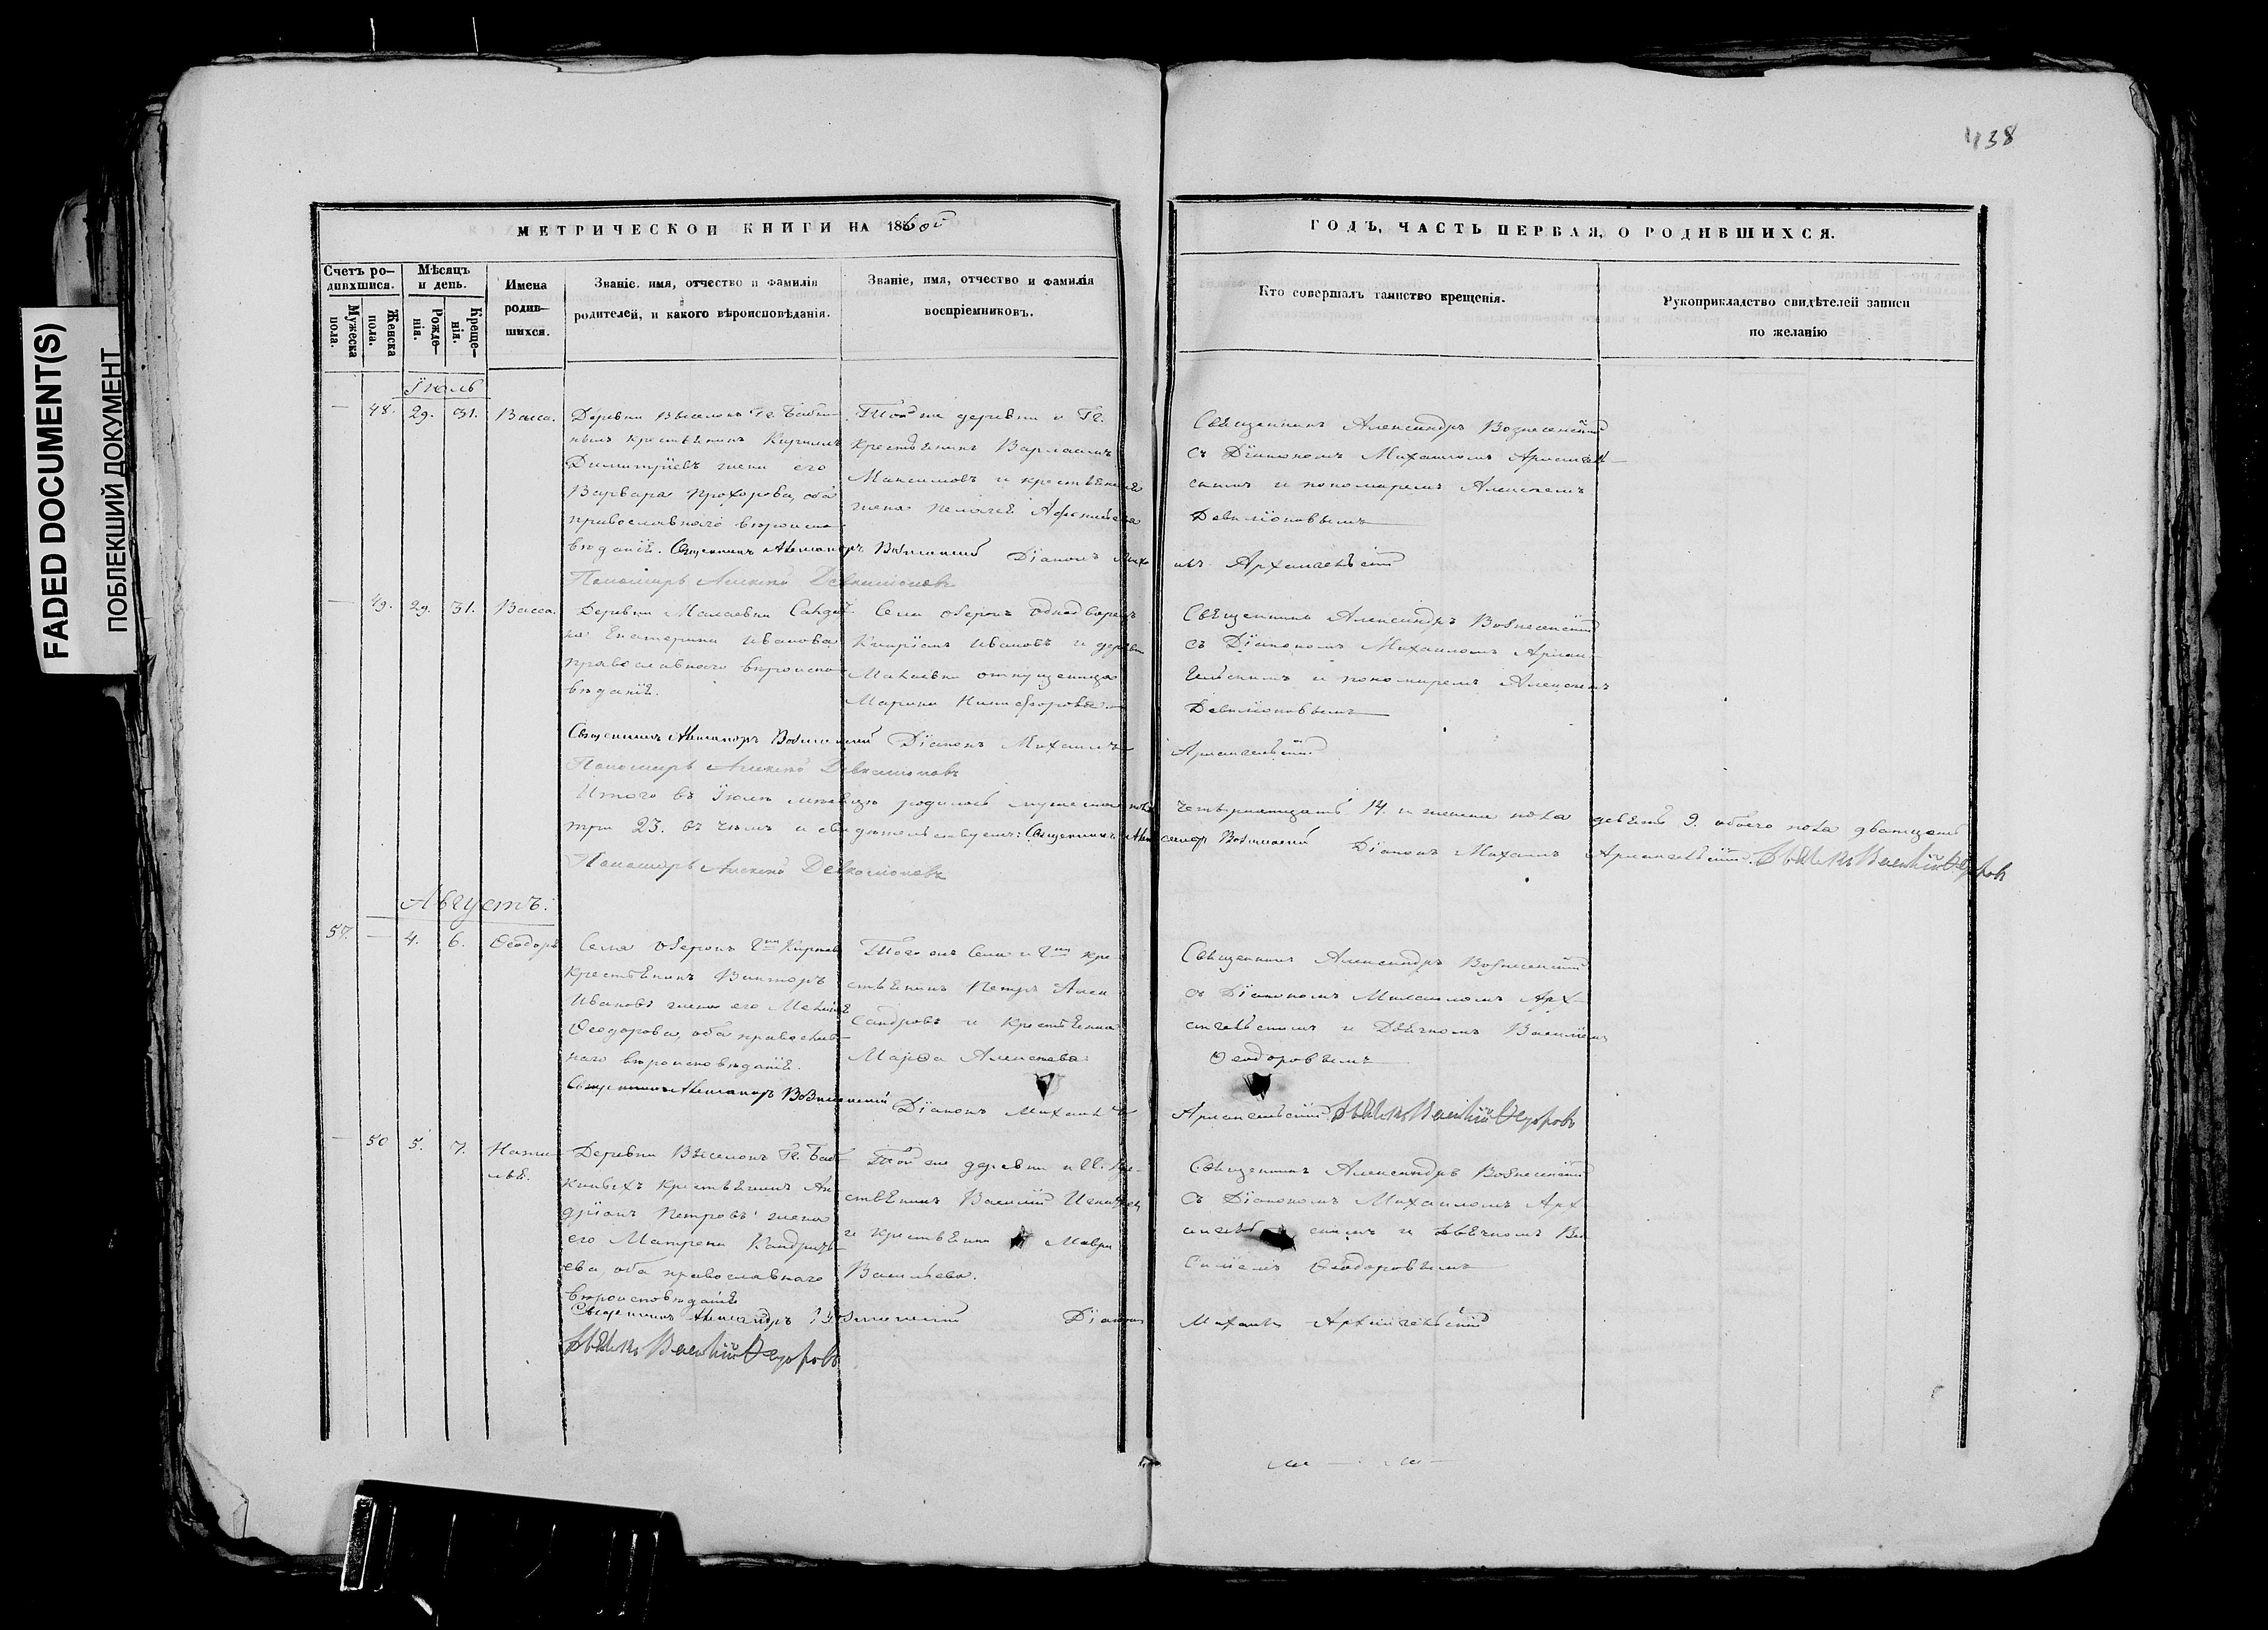 438
FADED DOCUMENT(S)
ПОБЛЕКШИЙ ДОКУМЕНТ
МЕТРИЧЕСКОЙ КНИГИ НА 1860й
ГОДЪ, ЧАСТЬ ПЕРВАЯ, О РОДИВШИХСЯ.
Счетъ ро-
дивхшися.
Мужеска пола.
Женска пола.
Мѣсяцъ
и день.
Рожде-
нія.
Креще-
нія.
Имена
родив-
шихся.
Званіе, имя, отчество и фамилія
родителей, и какого вѣроисповѣданія.
Званіе, имя, отчество и фамилія
воспріемниковъ.
Кто совершалъ таинство крещенія.
Рукоприкладство свидѣтелей записи
по желанію
Іюль
48. 29. 31. Васса.
Деревни Выселокъ Гг.
крестьянинъ Кириллъ
Димитріевъ жена его
Варвара Прохорова, оба
православнаго вѣроиспо-
вѣданія. Священникъ Александръ Вознесенскій Діаконъ
Той же деревни и Гг.
крестьянинъ Варлаамъ
Максимовъ и
жена
Священникъ Александръ Вознесенскій
съ Діакономъ Михаиломъ Арханг
скимъ и пономаремъ Алексѣемъ
Архангельскій
Пономарь Алексѣй
49. 29. 31. Васса.
Деревни
Екатерина Иванова
православнаго вѣроиспо-
вѣданія.
Села однодворецъ
Кипріанъ Ивановъ и деревни
Марина Никифорова.
Священникъ Александръ Вознесенскій
съ Діакономъ Михаиломъ Архан-
гельскимъ и пономаремъ Алексѣемъ
Священникъ Александръ Вознесенскій Діаконъ Михаилъ
Архангельскій
Пономарь Алексѣй
Итого въ Іюлѣ мѣсяцѣ родилось мужеска пола четырнадцать 14. и женска пола девять 9. обоего пола двадцать
три 23. въ чемъ и свидѣтельствуемъ: Священникъ Александръ Вознесенскій Діаконъ Михаилъ Архангельскій Дьячекъ Василій Федоровъ
Пономарь Алексѣй
Августъ.
57. 4. 6. Ѳеодоръ
Села
крестьянинъ Викторъ
Ивановъ жена его
Ѳеодорова, оба православ-
наго вѣроисповѣданія.
Того же села и кре-
стьянинъ Петръ Алек
сандровъ и крестьянка
Марѳа Алексѣева
Священникъ Александръ Вознесенскій
съ Діакономъ Михаиломъ Арх-
ангельскимъ и Дьячкомъ Василіемъ
Ѳеодоровымъ
Священникъ Александръ Вознесенскій Діаконъ Михаилъ
Архангельскій Дьячекъ Василій Федоровъ
50 5. 7. Ната-
лья.
Деревни Выселокъ Гг.
крестьянинъ Ан-
дріанъ Петровъ жена
его Матрена
ева, оба православнаго
вѣроисповѣданія
Той же деревни и Гг. кре-
стьянинъ Василій
и крестьянка Мавра
Васильева.
Священникъ Александръ Вознесенскій
съ Діакономъ Михаиломъ Арх-
ангельскимъ и дьячкомъ Ва
силіемъ Ѳеодоровымъ
Священникъ Александръ Вознесенскій Діаконъ
Михаилъ Архангельскій
Дьячекъ Василій Федоровъ